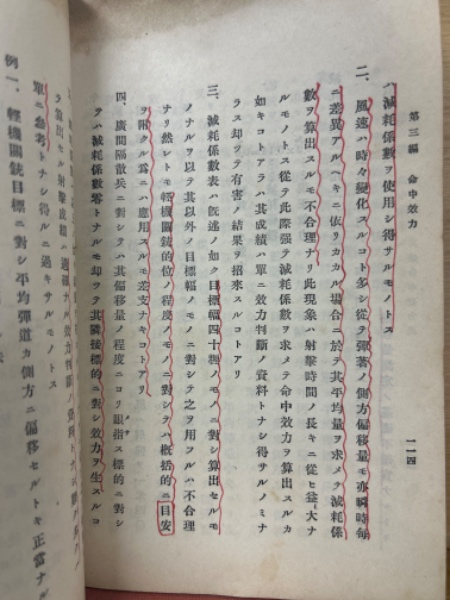 第三編　命中效力
一一四
ハ減耗係數ヲ使用シ得サルモノトス
二、風速ハ時々變化スルコト多シ從テ彈著ノ側方偏移量モ亦瞬時每
ニ差異アルヘキニ依リカカル場合ニ於テ其平均量ヲ求メテ減耗係
數ヲ算出スルモ不合理ナリ此現象ハ射擊時間ノ長キニ從ヒ益大ナ
ルモノトス從テ此際强テ減耗係數ヲ求メテ命中效力ヲ算出スルカ
如キコトアラハ其成績ハ單ニ效力判斷ノ資料トナシ得サルノミナ
ラス却ツテ有害ノ結果ヲ招來スルコトアリ
三、減耗係數表ハ旣述ノ如ク目標幅四十糎ノモノニ對シ算出セルモ
ノナルヲ以テ其以外ノ目標幅ノモノニ對シテ之ヲ用フルハ不合理
ナリ然レトモ輕機關銃的位ノ程度ノモノニ對シテハ槪括的ニ目安
ヲ附クル爲ニハ應用スルモ差支ナキコトアリ
四、廣間隔散兵ニ對シテハ其偏移量ノ程度ニヨリ眼指ス標的ニ對シ
メザ
テハ減耗係數零トナルモ却ツテ其隣接標的ニ對シ效力ヲ生スルコ
ヲ算出セル射擊成績ハ過
ナル效力判斷ノ資料
單ニ參考トナシ得ルニ過キサルモノトス
例一、輕機關銃目標ニ對シ平均彈道カ側方ニ偏移セルトキ正當ナル